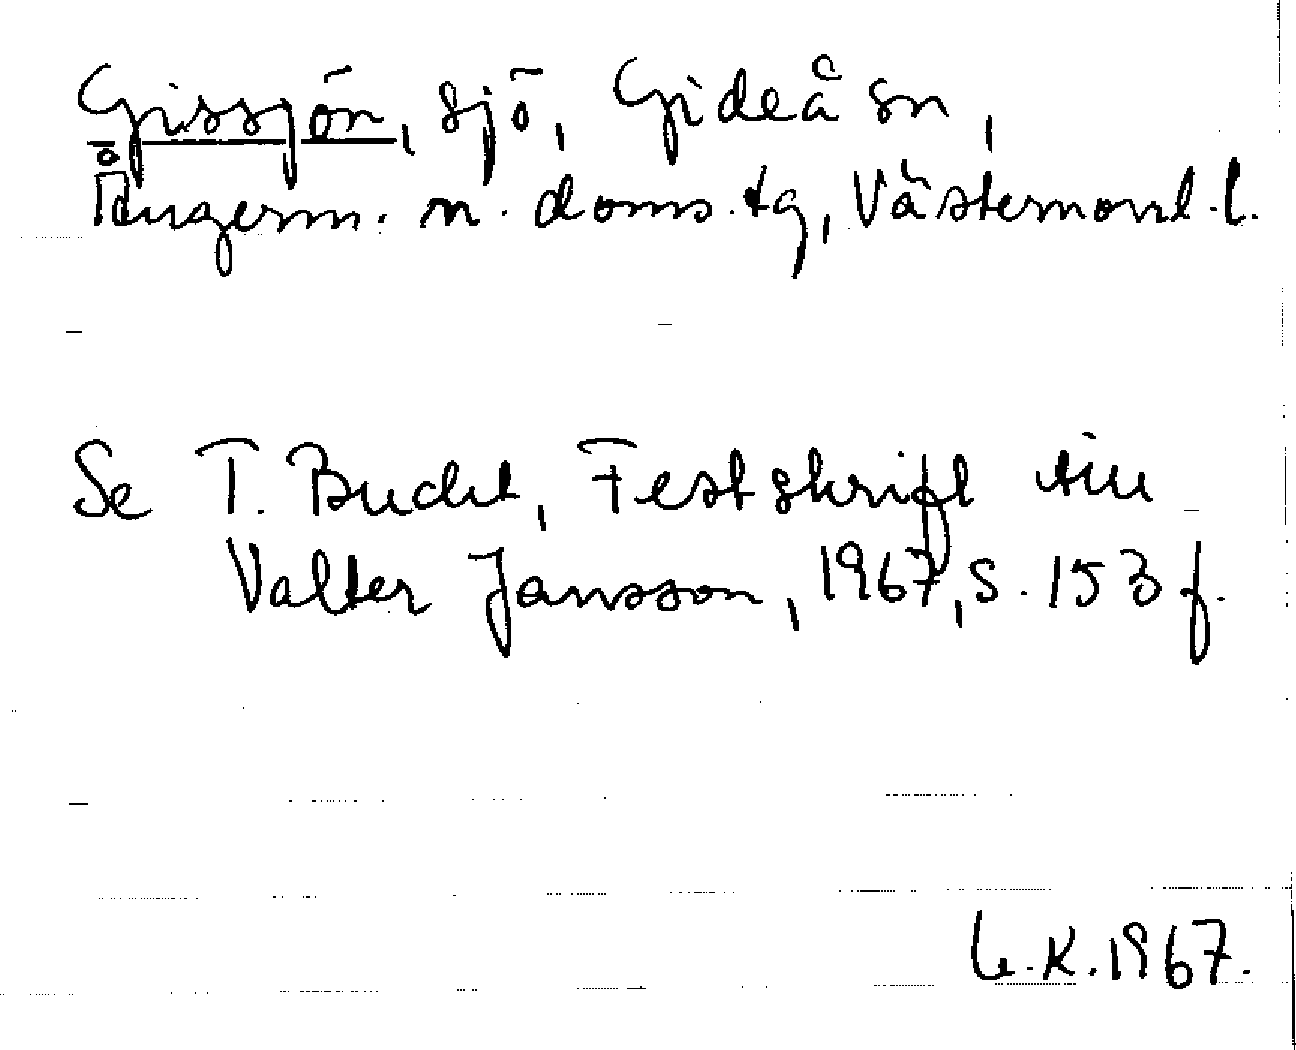 Gissjön, sjö, Gideå sn,
Ångerm. n. doms. tg, Västernorrl. l.
Se T. Bucht, Festskrift till
Valter Jansson, 1967, s. 153 f.
L.K. 1967.